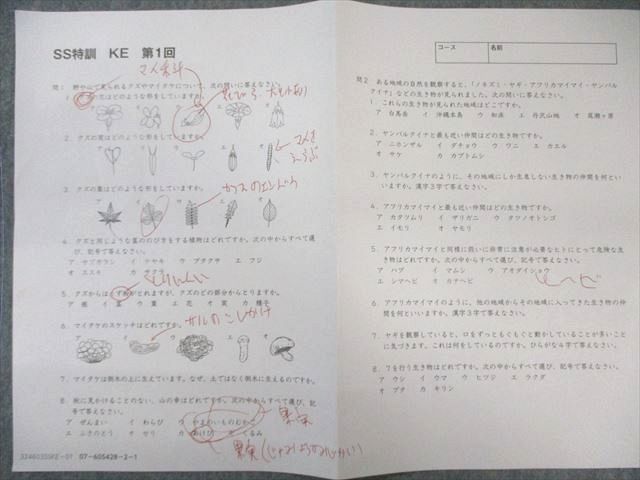 SS特訓 KE 第1回
マメ科
問1 野や山で見られるクズやマイタケについて、次の問いに答えなさい。
1. クズの花はどのような形をしていますか。
ア イ ウ エ オ
2. クズの実はどのような形をしていますか。
ア イ ウ エ オ
3. クズの葉はどのような形をしていますか。
カラスのエンドウ
ア イ ウ エ オ
4. クズと同じような茎ののび方をする植物はどれですか。次の中からすべて選び、記号で答えなさい。
ア ヤブガラシ イ ケヤキ ウ ブタクサ エ フジ
オ ススキ カ サクラ
5. クズからはくず粉がとれますが、クズのどの部分からとりますか。
ア 根 イ 茎 ウ 葉 エ 花 オ 実 カ 種子
サルのこしかけ
6. マイタケのスケッチはどれですか。
ア イ ウ エ オ
7. マイタケは倒木の上に生えています。なぜ、土ではなく倒木に生えるのですか。
8. 秋に見かけることのない、山の幸はどれですか。次の中からすべて選び、記号で答えなさい。
ア ぜんまい イ わらび ウ やまのいものむかご
エ ふきのとう オ せり カ あけび キ くるみ
果実
32460355KE-01 07-605428-2-1
コース 名前
問2 ある地域の自然を観察すると、「ノネズミ・ヤギ・アフリカマイマイ・ヤンバルクイナ」などの生き物が見られました。次の問いに答えなさい。
1. これらの生き物が見られた地域はどこですか。
ア 白馬岳 イ 沖縄本島 ウ 知床 エ 丹沢山地 オ 尾瀬ヶ原
2. ヤンバルクイナと最も近い仲間はどの生き物ですか。
ア ニホンザル イ ダチョウ ウ ワニ エ カエル
オ サケ カ カブトムシ
3. ヤンバルクイナのように、その地域にしか生息しない生き物の仲間を何といいますか。漢字3字で答えなさい。
4. アフリカマイマイと最も近い仲間はどの生き物ですか。
ア カタツムリ イ ザリガニ ウ タツノオトシゴ
エ イモリ オ ヤモリ
5. アフリカマイマイと同様に扱いに非常に注意が必要なヒトにとって危険な生き物はどれですか。次の中からすべて選び、記号で答えなさい。
ア ハブ イ マムシ ウ アオダイショウ
エ シマヘビ オ カナヘビ
ヘビ
6. アフリカマイマイのように、他の地域からその地域に入ってきた生き物の仲間を何といいますか。漢字3字で答えなさい。
7. ヤギを観察していると、口をずっともぐもぐと動かしていることが多いことに気づきます。これは何をしているのですか。ひらがな4字で答えなさい。
8. 7を行う生き物はどれですか。次の中からすべて選び、記号で答えなさい。
ア ウシ イ ウマ ウ ヒツジ エ ラクダ
オ ブタ カ キリン